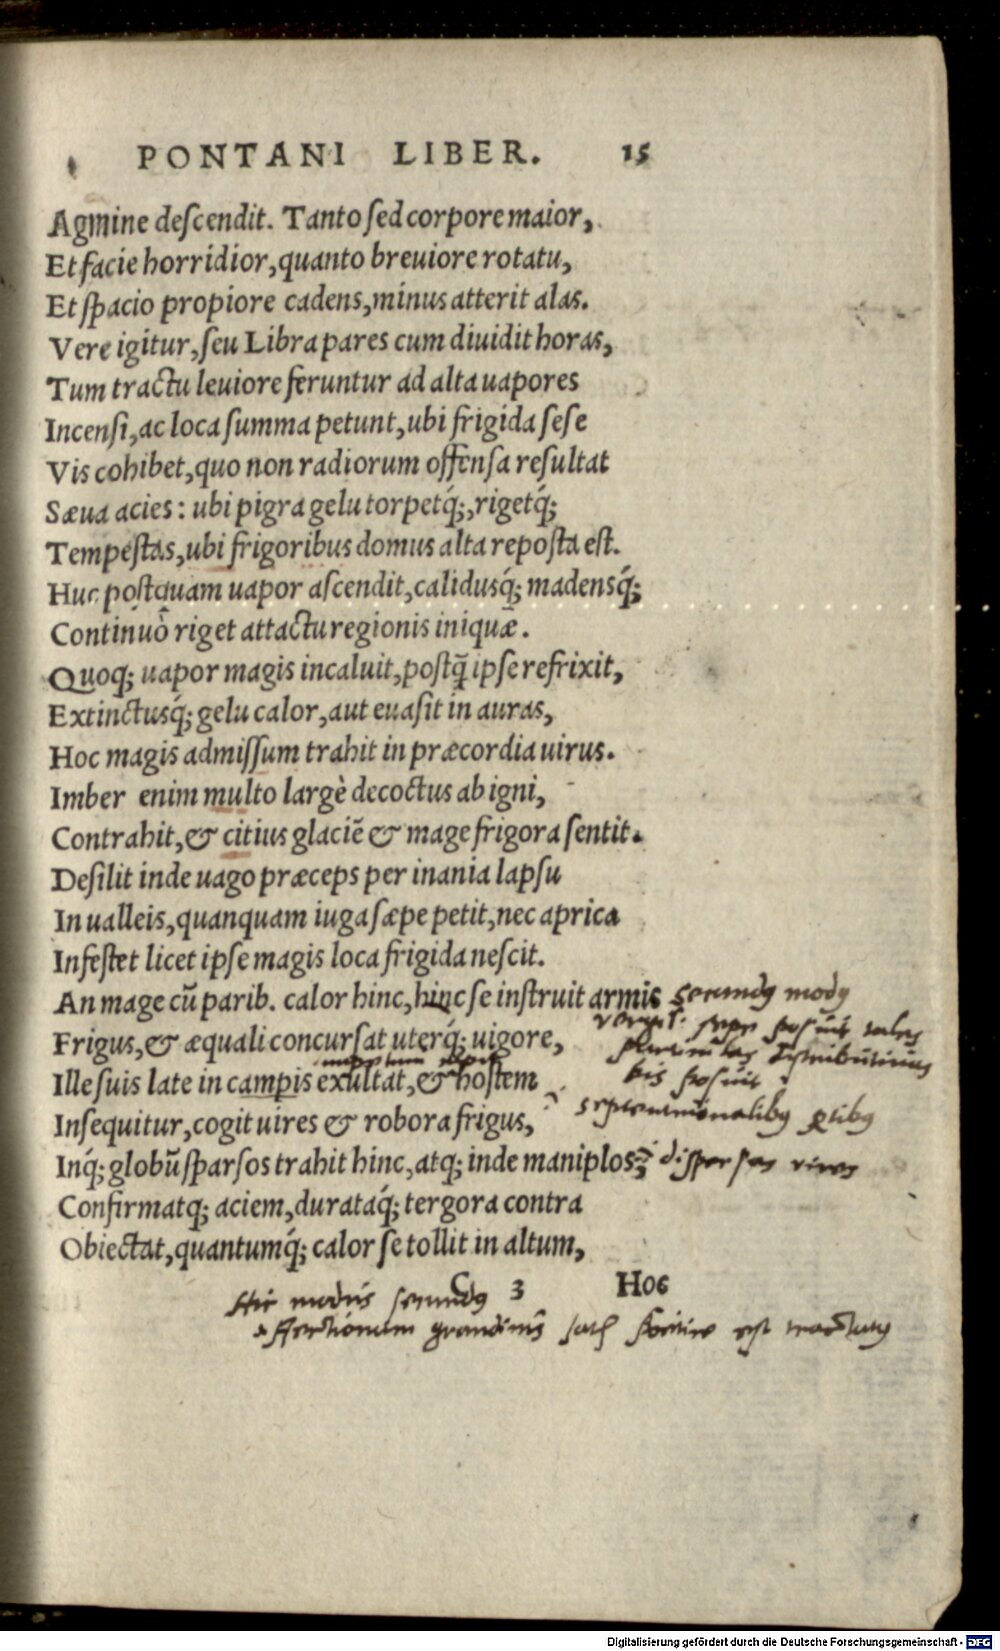 PONTANI LIBER. 15
Agmine deſcendit. Tanto ſed corpore maior,
Et facie horridior, quanto breuiore rotatu,
Et ſpacio propiore cadens, minus atterit alas.
Vere igitur, ſeu Libra pares cum diuidit horas,
Tum tractu leuiore feruntur ad alta uapores
Incenſi, ac loca ſumma petunt, ubi frigida ſeſe
Vis cohibet, quo non radiorum offenſa reſultat
Sæua acies: ubi pigra gelu torpetq́;, rigetq́;
Tempeſtas, ubi frigoribus domus alta repoſta eſt.
Huc poſtquam uapor aſcendit, calidusq́; madensq́;
Continuò riget attactu regionis iniquæ.
Quoq; uapor magis incaluit, poſtq̃ ipſe refrixit,
Extinctusq́; gelu calor, aut euaſit in auras,
Hoc magis admiſſum trahit in præcordia uirus.
Imber enim multo largè decoctus ab igni,
Contrahit, & citius glaciẽ & mage frigora ſentit.
Deſilit inde uago præceps per inania lapſu
In ualleis, quanquam iuga ſæpe petit, nec aprica
Infeſtet licet ipſe magis loca frigida neſcit.
An mage cũ parib. calor hinc, hinc ſe inſtruit armis secundus modus
ſepe poſuit tales
Frigus, & æquali concurſat uterq́; uigore,
particulas distributiuas
bis poſuit
Ille suis late in campis exultat, & hoſtem
septentrionalibus
Inſequitur, cogit uires & robora frigus,
Inq́; globũ ſparſos trahit hinc, atq; inde maniplos: i dispersas vires
Confirmatq; aciem, durataq́; tergora contra
Obiectat, quantumq́; calor ſe tollit in altum,
C 3 Hoc
Hic modus secundus
grandinis est tractatus
Digitalisierung gefördert durch die Deutsche Forschungsgemeinschaft - DFG